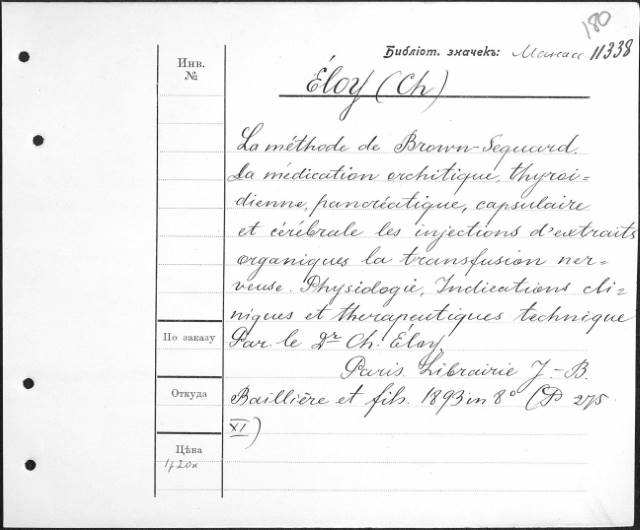 180
Библіот. значекъ: 11338
Инв.
№
Éloy (Ch)
La méthode de Brown-Sequard.
La médication orchitique, thyroi=
dienne, pancréatique, capsulaire
et cérébrale les injections d'extraits
organiques la transfusion ner=
veuse. Physiologie, Indications cli=
niques et therapeutiques technique
По заказу
Par le Dr Ch. Éloy
Paris. Librairie J.-B.
Откуда
Baillière et fils. 1893 in 8° (P 275
XI)
Цѣна